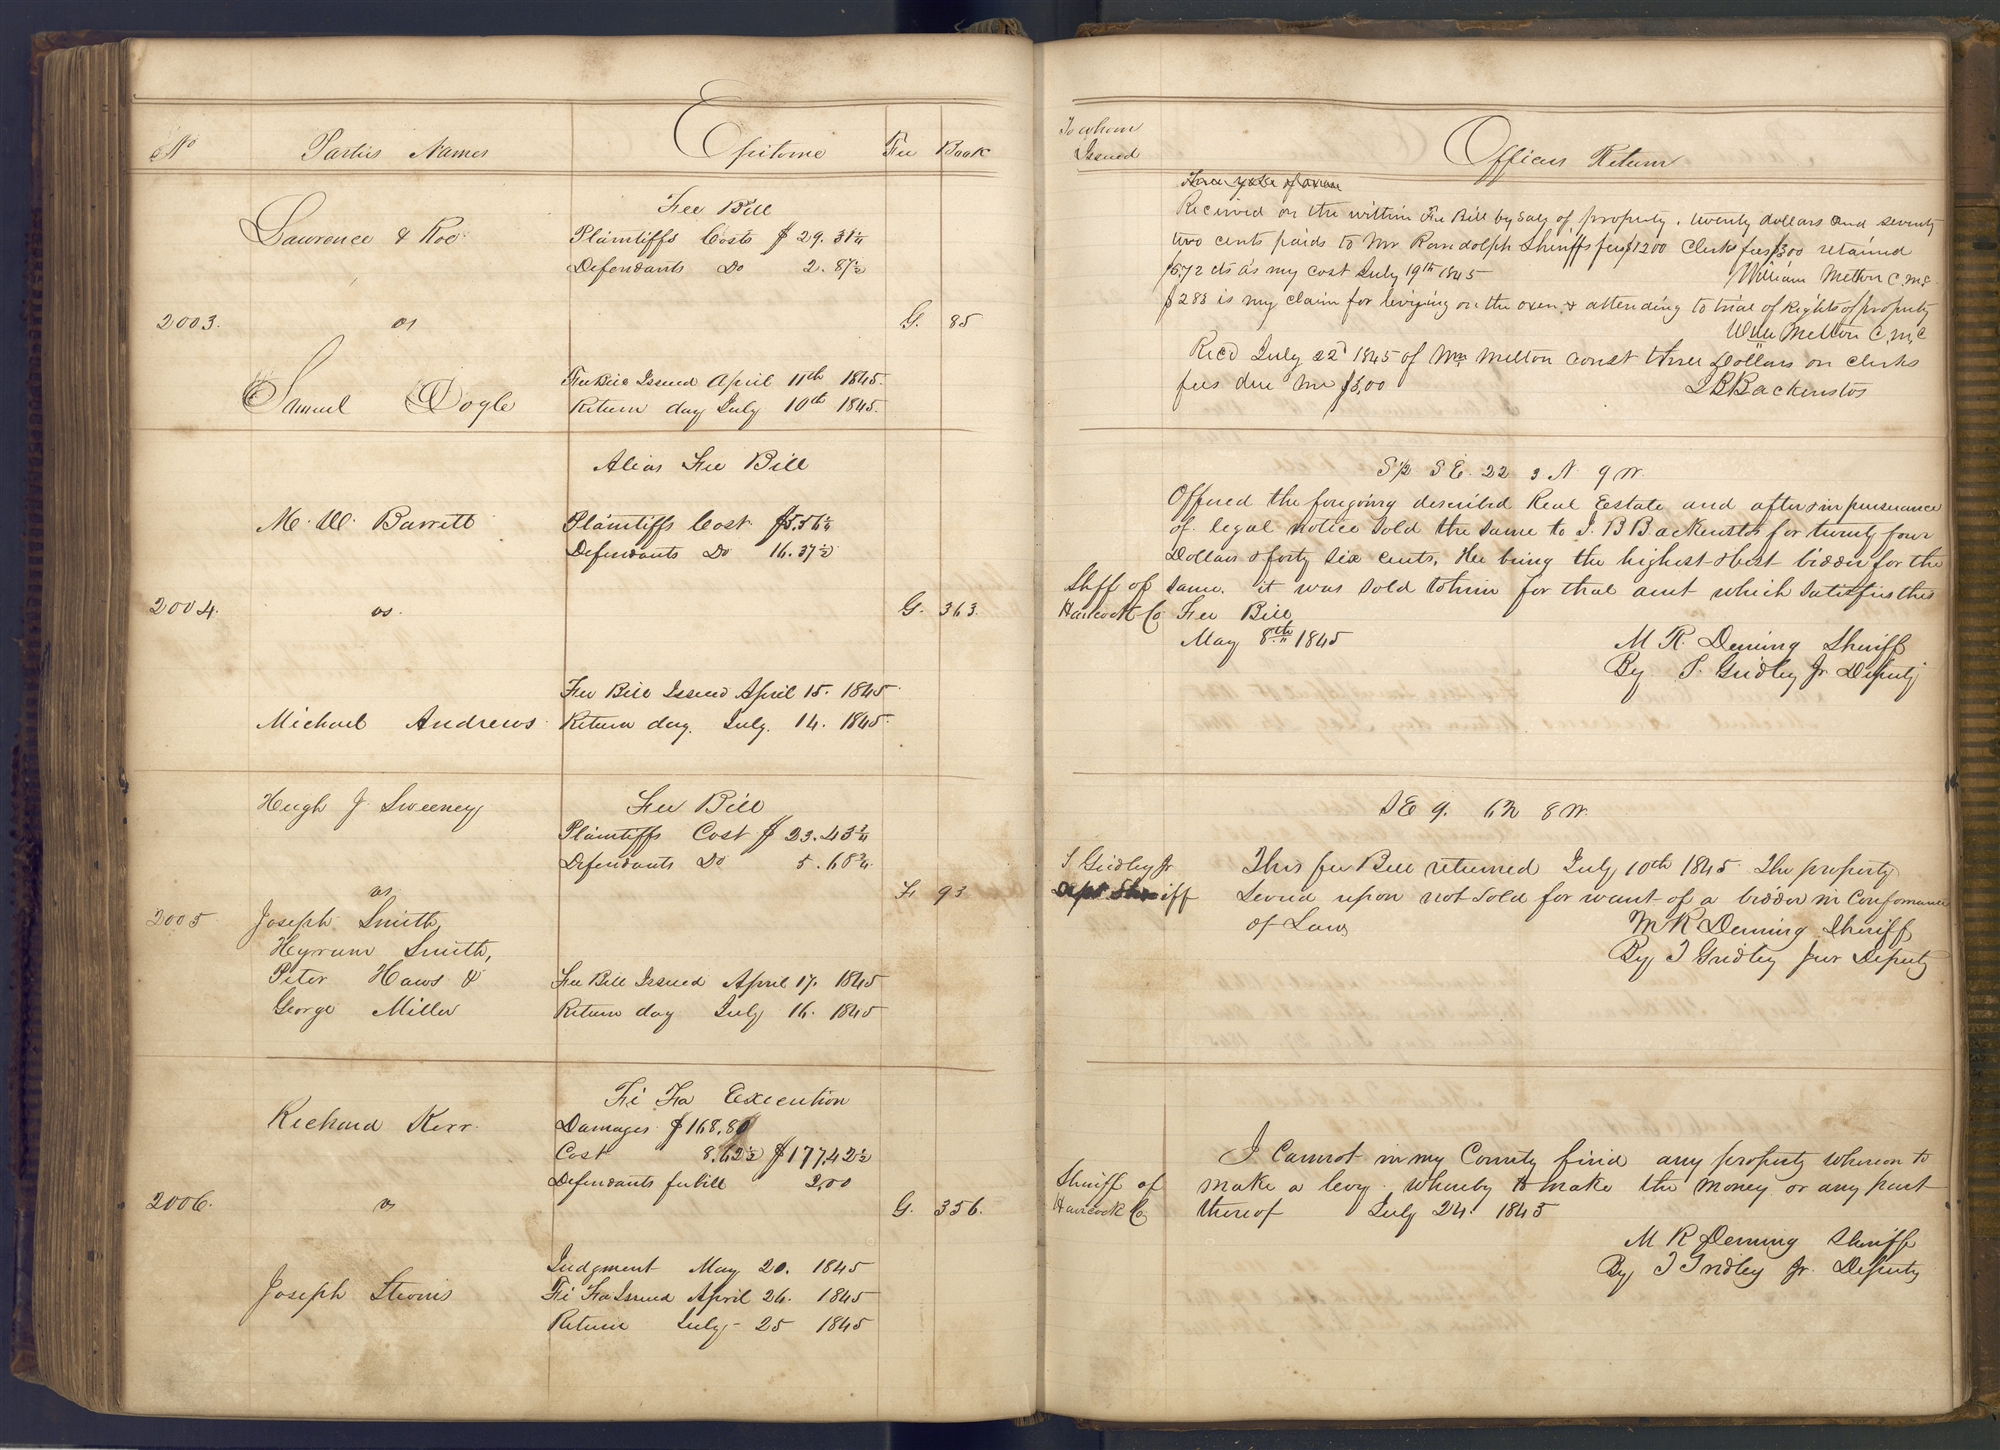 No
Parties Names
Epitome
Fee Book
Lawrence & Roe
Fee Bill
Plaintiffs Costs $ 29.31¼
Defendants Do 2.87½
2003.
vs
G. 85
Samuel Dogle
Fee Bill Issued April 11th 1845.
Return day July 10th 1845.
Alias Fee Bill
M. W. Barrett
Plaintiffs Cost $5.56¼
Defendants Do 16.37½
2004.
vs.
G. 363.
Fee Bill Issued April 15. 1845.
Michael Andrews
Return day. July. 14. 1845.
Hugh J. Sweeney
Fee Bill
Plaintiffs Cost $ 23.43¾
Defendants Do 5.68¾
vs
F. 93
2005
Joseph Smith,
Hyrum Smith,
Peter Haws &
Fee Bill Issued April 17. 1845
George Miller
Return day July 16. 1845
Fi Fa Execution
Richard Kerr.
Damages $168,80
Cost 8.62½ $177,42½
Defendants fee bill 2,00
2006.
vs
G. 356.
Judgment May 20. 1845
Joseph
Fi Fa Issued April 26. 1845
Return July - 25 1845
To whom
Issued
Officers Return
Received on the within Fee Bill by Sale of property. twenty dollars and seventy
two cents paids to Mr Randolph Sheriffs fees $1200 Clerk fees $300 retained
$5,72 cts as my cost July 19th 1845
William Melton C.M.C
$288 is my claim for levying on the oxen & attending to trial of Rights of property
Wm Melton C.M.C
Recd July 22d 1845 of Wm Melton const three Dollars on clerks
fees due me $3,00
J B Backenstos
S½ SE. 22 3 N 9 W.
Offered the foregoing described Real Estate and after in pursuance
of legal notice sold the same to J. B Backenstos for twenty four
Dollars & forty six cents. He being the highest & best bidder for the
Shff of same. it was sold to him for that amt which satisfies this
Hancock Co Fee Bill
May 8th 1845
M R. Deming Sheriff
By T. Gridley Jr Deputy
SE 9. 6N 8 W.
T Gridley Jr
This fee Bill returned July 10th 1845 The property
Dept Sheriff
Levied upon not sold for want of a bidder in Conformance
of Law
M R Deming Sheriff
By T Gridley Junr Deputy
I Cannot in my County find any property whereon to
Sheriff of make a levy whereby to make the money or any part
Hancock Co thereof July 24. 1845
M R Deming Sheriff
By T Gridley Jr. Deputy